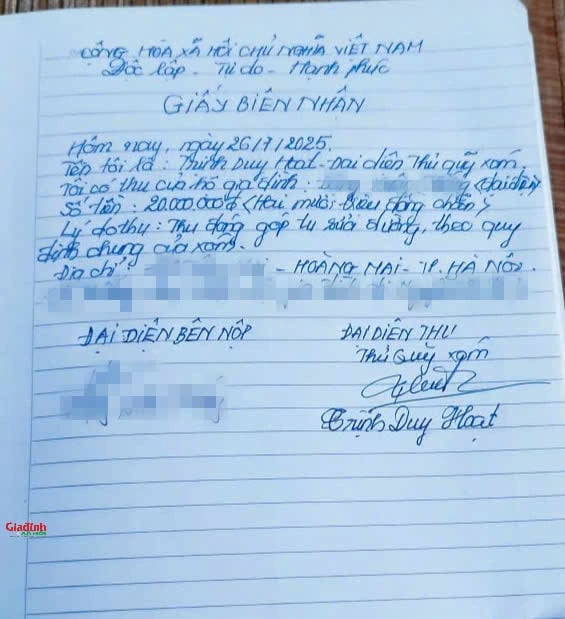 CỘNG HÒA XÃ HỘI CHỦ NGHĨA VIỆT NAM
Độc lập - Tự do - Hạnh phúc
GIẤY BIÊN NHẬN
Hôm nay, ngày 26/7/2025.
Tên tôi là: Trịnh Duy Hoạt - Đại diện Thủ quỹ xóm.
Tôi có thu của hộ gia đình: (đại diện)
Số tiền: 20.000.000đ (Hai mươi triệu đồng chẵn)
Lý do thu: Thu đóng góp tu sửa đường, theo quy
định chung của xóm.
Địa chỉ: - HOÀNG MAI - TP. HÀ NỘI.
ĐẠI DIỆN BÊN NỘP
ĐẠI DIỆN THU
Thủ Quỹ xóm
Trịnh Duy Hoạt
Giađình